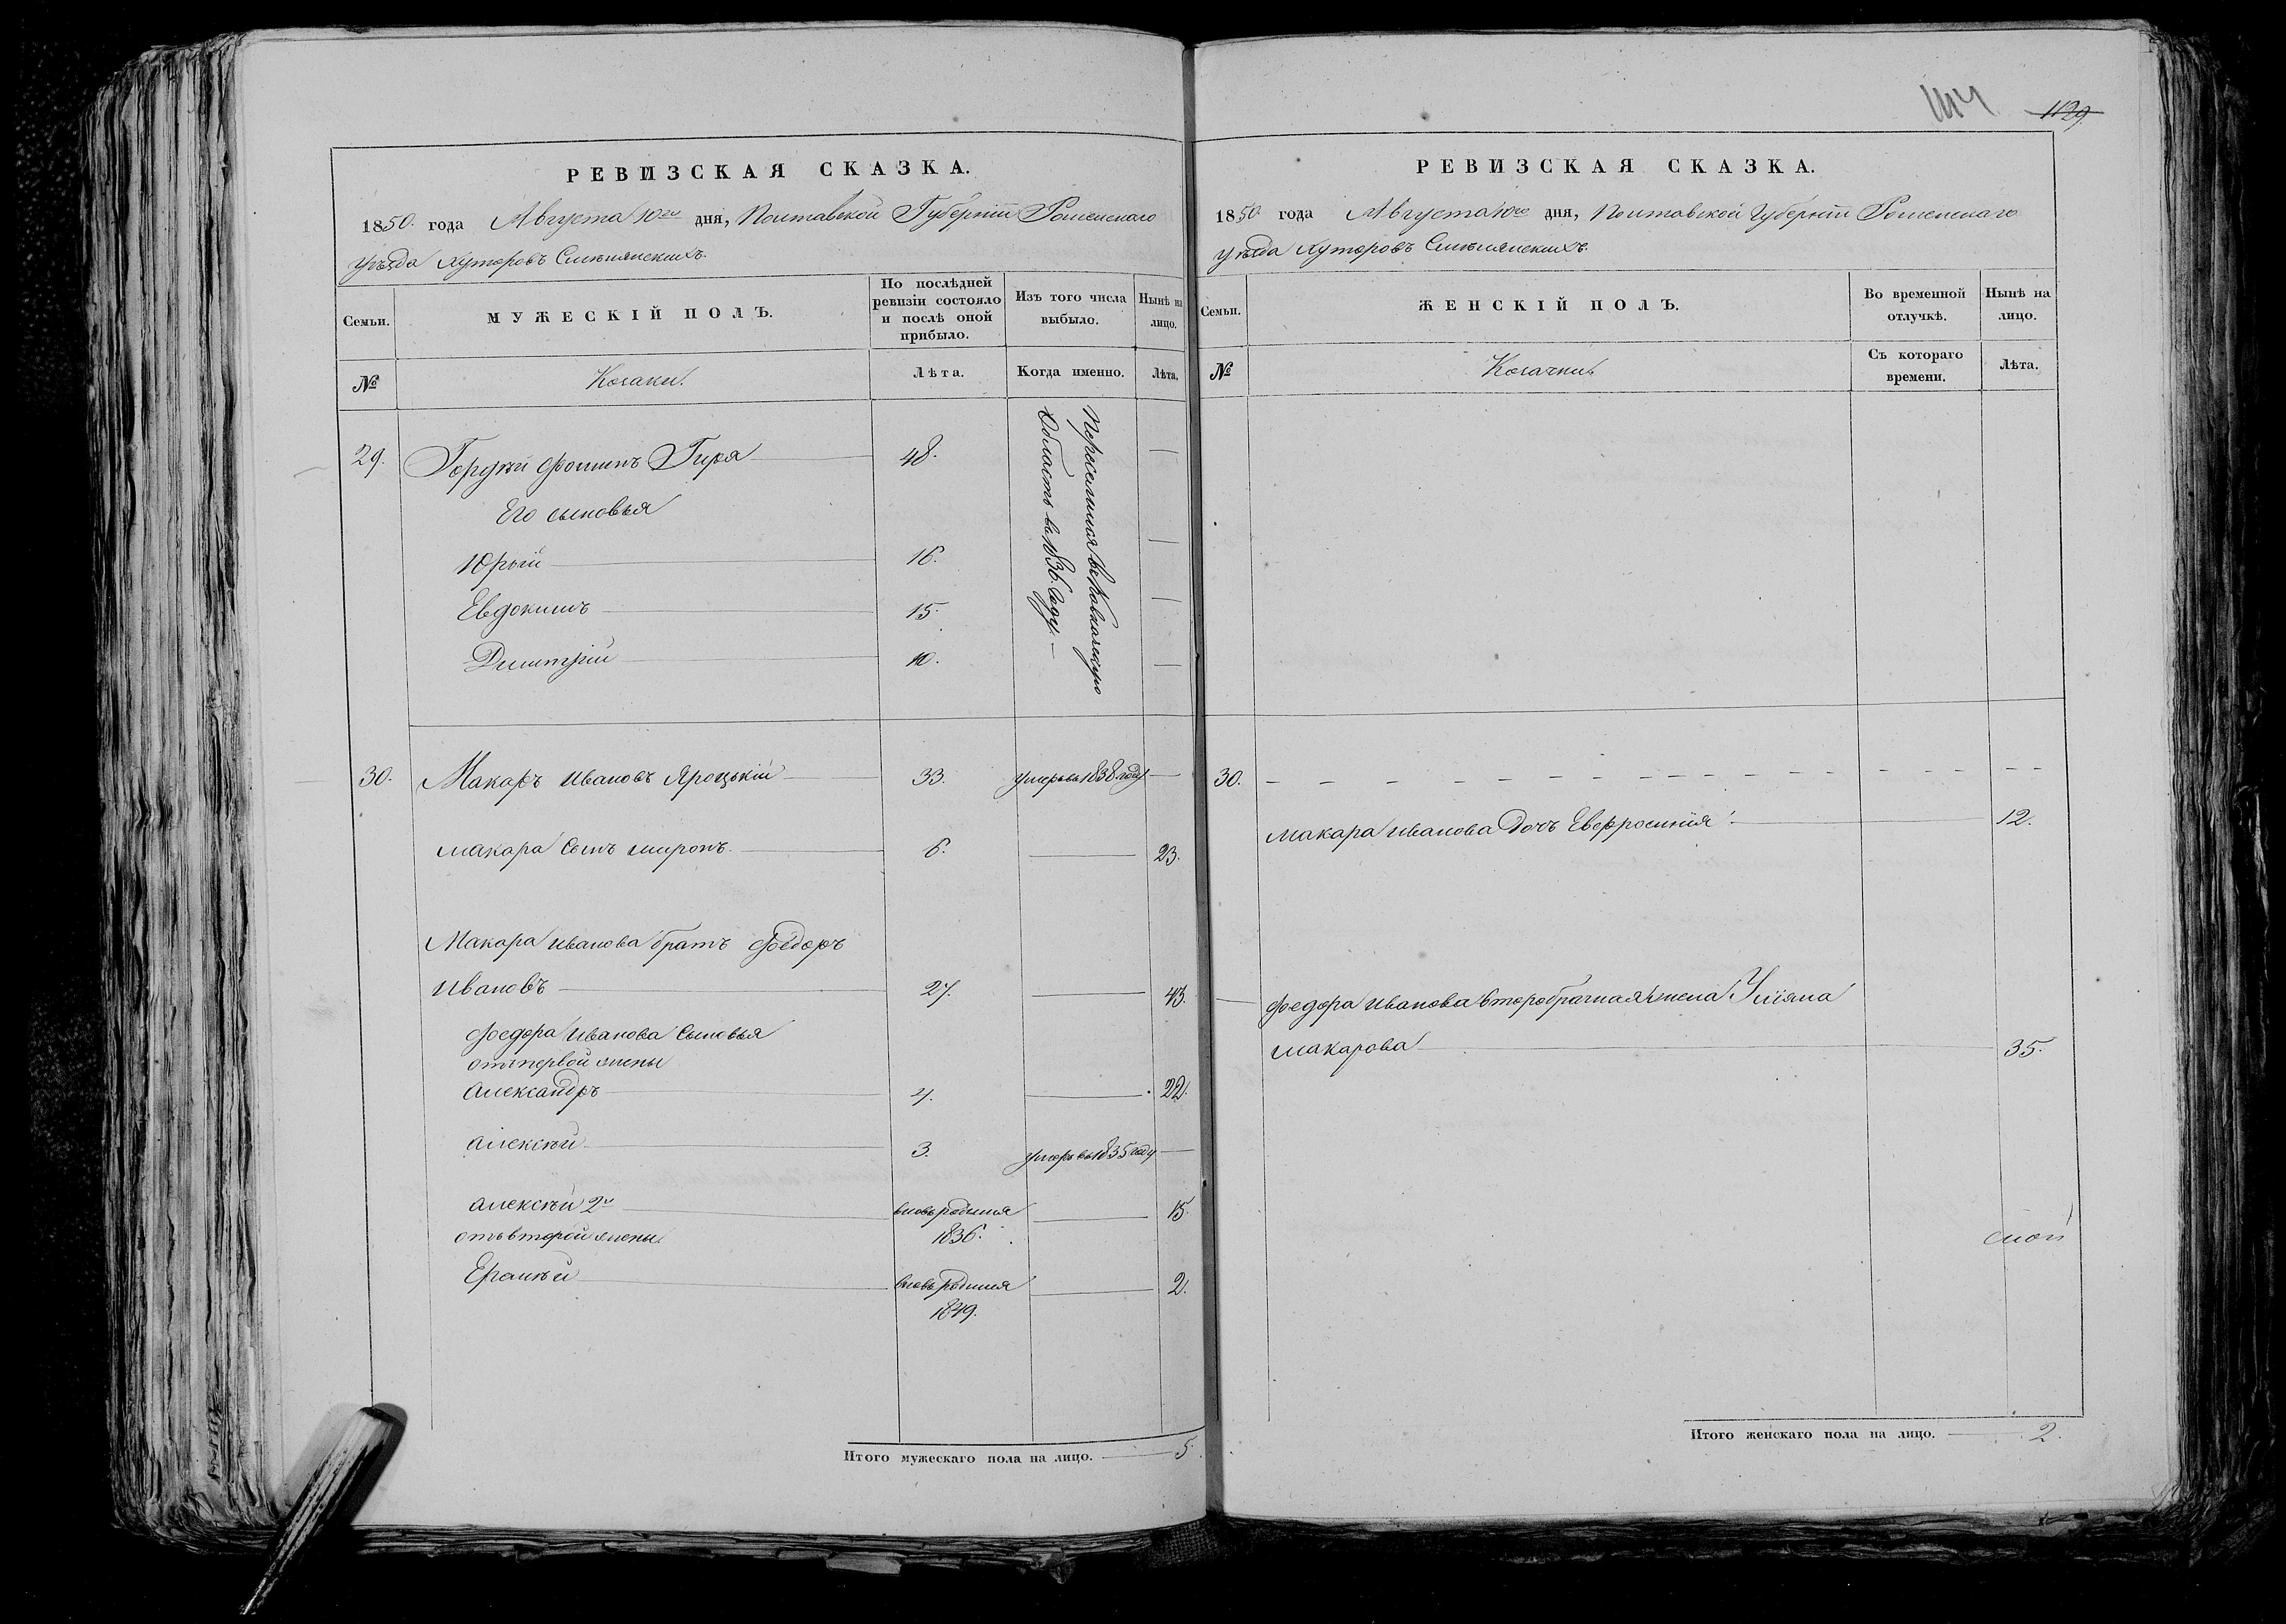 РЕВИЗСКАЯ СКАЗКА.
1850. года Августа 10го дня, Полтавской Губерніи Роменскаго
уѣзда Хуторовъ Смѣлянскихъ.
Семьи.
МУЖЕСКІЙ ПОЛЪ.
По послѣдней ревизіи состояло и послѣ оной прибыло.
Изъ того числа выбыло.
Нынѣ на лицо.
№
Козаки.
Лѣта.
Когда именно.
Лѣта.
29. Гордѣй Фоминъ Гиря 48.
Переселился въ Кавказскую
Область въ 1836. Году.
Его сыновья
Юрій 16.
Евдокимъ 15.
Димитрій 10.
30. Макаръ Ивановъ Яроцькій 33. умеръ въ 1838 году
Макара Сынъ Миронъ 6. 23.
Макара Иванова братъ Федоръ
Ивановъ 27. 43.
Федора Иванова Сыновья
отъ первой жены
Александръ 4. 22.
Алексѣй 3. умеръ въ 1835 году
Алексѣй 2й вновьродился 15.
отъ второй жены 1836.
вновьродился 2.
1849.
Итого мужескаго пола на лицо. 5.
1129.
РЕВИЗСКАЯ СКАЗКА.
1850 года Августа 10го дня, Полтавской Губерніи Роменскаго
уѣзда Хуторовъ Смѣлянскихъ.
Семьи.
ЖЕНСКІЙ ПОЛЪ.
Во временной отлучкѣ.
Нынѣ на лицо.
№
Козачки.
Съ котораго времени.
Лѣта.
30.
Макара Иванова Дочь Евфросинія 12.
Федора Иванова второбрачная жена Уліяна
Макарова 35.
Итого женскаго пола на лицо. 2.